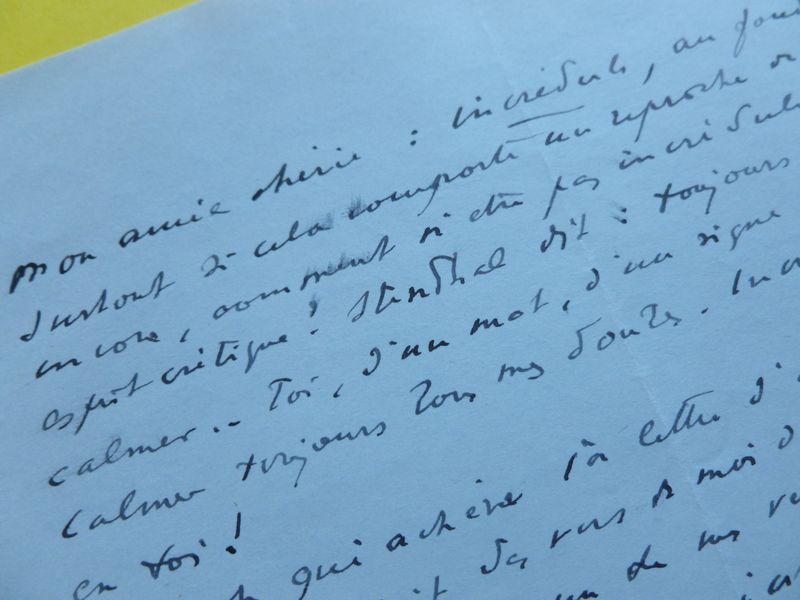 mon amie chérie : incrédule, au fond
surtout si cela comporte un reproche
encore, comment ni être pas incrédule
esprit critique! Stendhal dit : toujours
calmer .. Toi, d'un mot, d'un signe
calmer toujours tous mes doutes. Incr
en toi!
qui achève ta lettre d'
des vers de moi d
un de mes ve